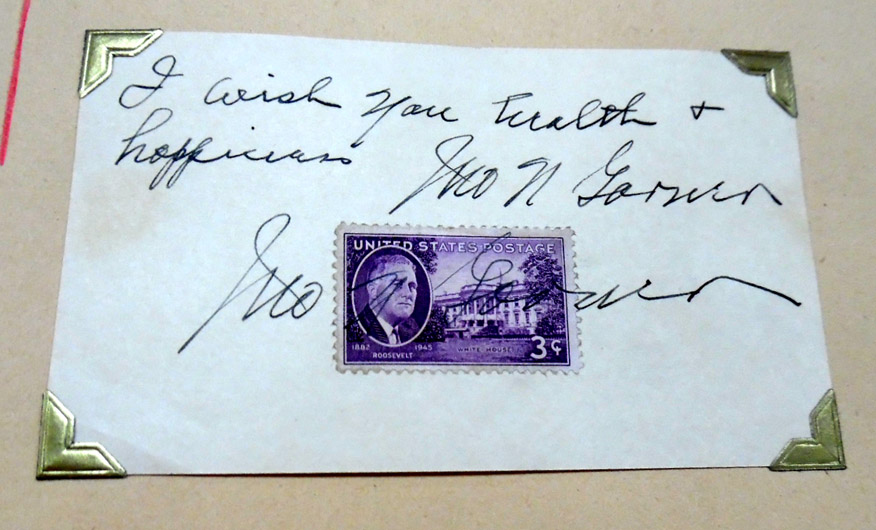 I wish you health +
happiness Jno N Garner
UNITED STATES POSTAGE
Jno N Garner
1882 1945
ROOSEVELT
WHITE HOUSE
3¢